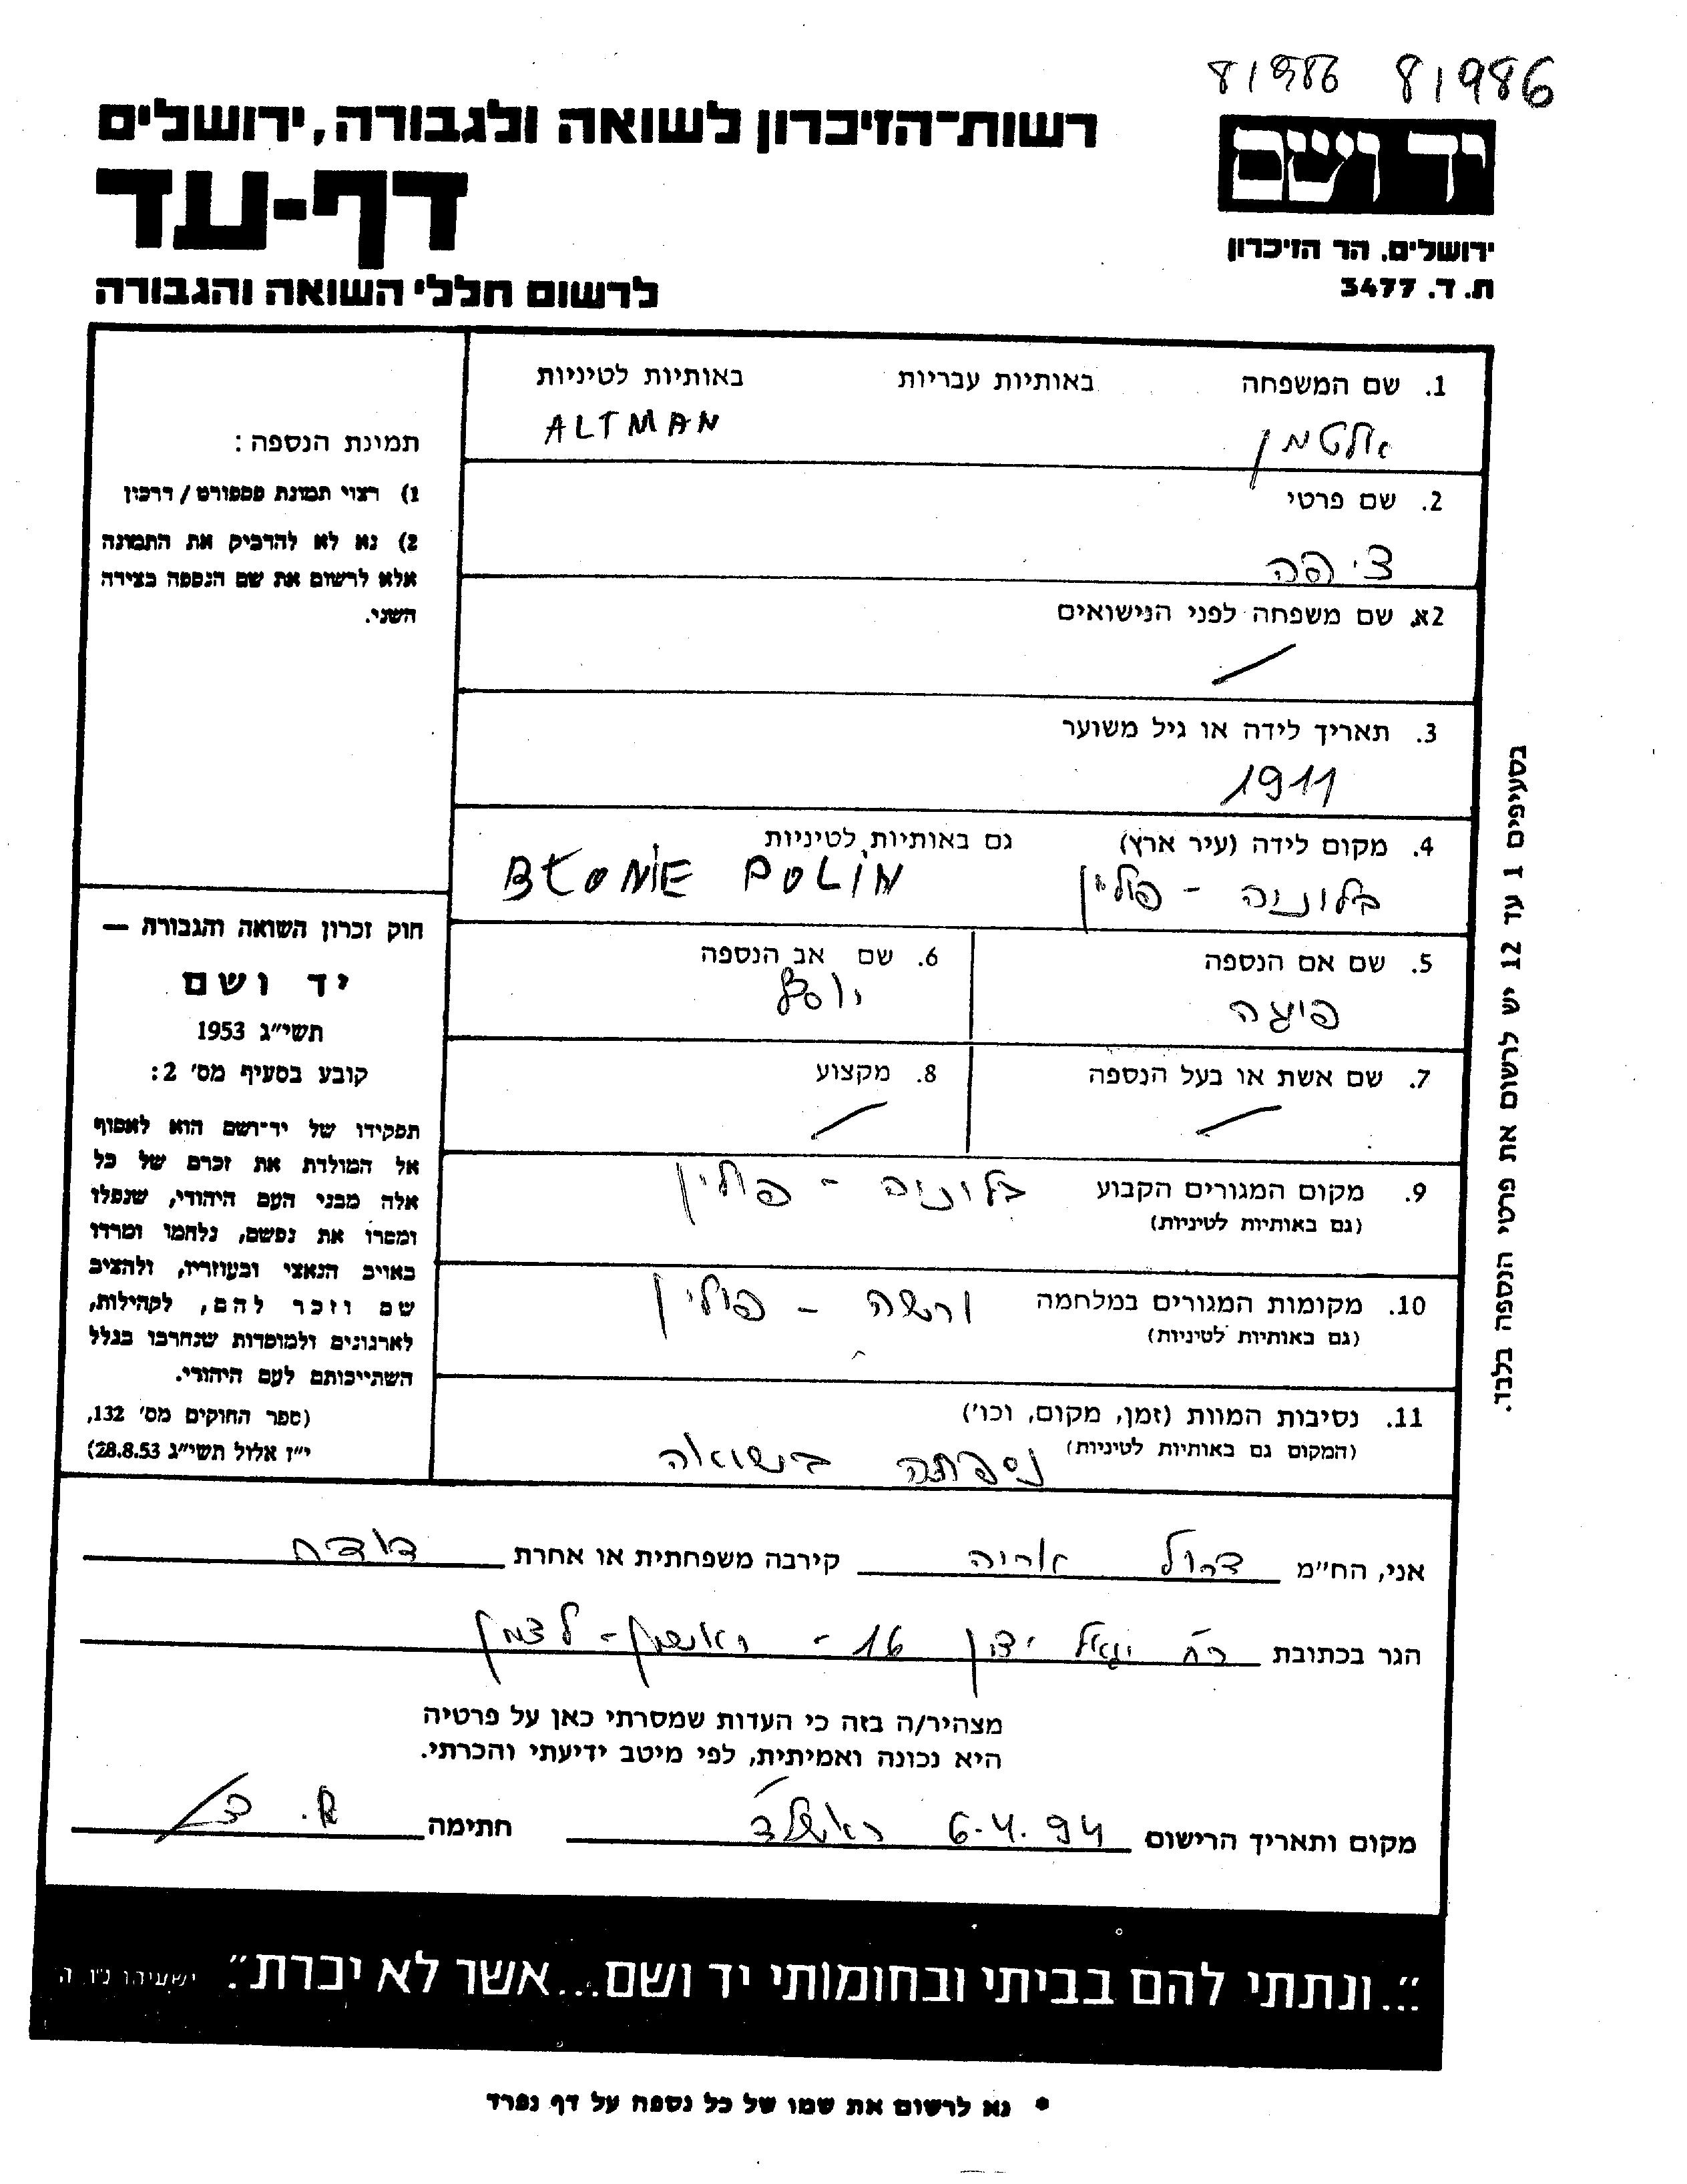 81986 81986
רשות־הזיכרון לשואה ולגבורה, ירושלים
דף-עד
לרשום חללי השואה והגבורה
יד ושם
ירושלים, הר הזיכרון
ת. ד. 3477
1. שם המשפחה באותיות עבריות באותיות לטיניות
אלטמן ALTMAN
2. שם פרטי
ציפה
2א. שם משפחה לפני הנישואים
3. תאריך לידה או גיל משוער
1911
4. מקום לידה (עיר ארץ) גם באותיות לטיניות
בלוניה - פולין BŁONIE POLIN
5. שם אם הנספה
פיגה
6. שם אב הנספה
יוסף
7. שם אשת או בעל הנספה
8. מקצוע
9. מקום המגורים הקבוע בלוניה - פולין
(גם באותיות לטיניות)
10. מקומות המגורים במלחמה ורשה - פולין
(גם באותיות לטיניות)
11. נסיבות המוות (זמן, מקום, וכו')
(המקום גם באותיות לטיניות) נספתה בשואה
תמונת הנספה:
1) רצוי תמונת פספורט / דרכון
2) נא לא להדביק את התמונה
אלא לרשום את שם הנספה בצידה
השני.
חוק זכרון השואה והגבורה —
יד ושם
תשי״ג 1953
קובע בסעיף מס׳ 2:
תפקידו של יד־ושם הוא לאסוף
אל המולדת את זכרם של כל
אלה מבני העם היהודי, שנפלו
ומסרו את נפשם, נלחמו ומרדו
באויב הנאצי ובעוזריו, ולהציב
שם וזכר להם, לקהילות,
לארגונים ולמוסדות שנחרבו בגלל
השתייכותם לעם היהודי.
(ספר החוקים מס׳ 132,
י״ז אלול תשי״ג 28.8.53)
בסעיפים 1 עד 12 יש לרשום את פרטי הנספה בלבד.
אני, הח״מ אריה קירבה משפחתית או אחרת
הגר בכתובת רח יגאל ידין 16 - ראשון - לציון
מצהיר/ה בזה כי העדות שמסרתי כאן על פרטיה
היא נכונה ואמיתית, לפי מיטב ידיעתי והכרתי.
מקום ותאריך הרישום 6.4.94 ראשל״צ חתימה
״...ונתתי להם בביתי ובחומותי יד ושם...אשר לא יכרת״. ישעיהו נ״ו, ה׳
* נא לרשום את שמו של כל נספה על דף נפרד